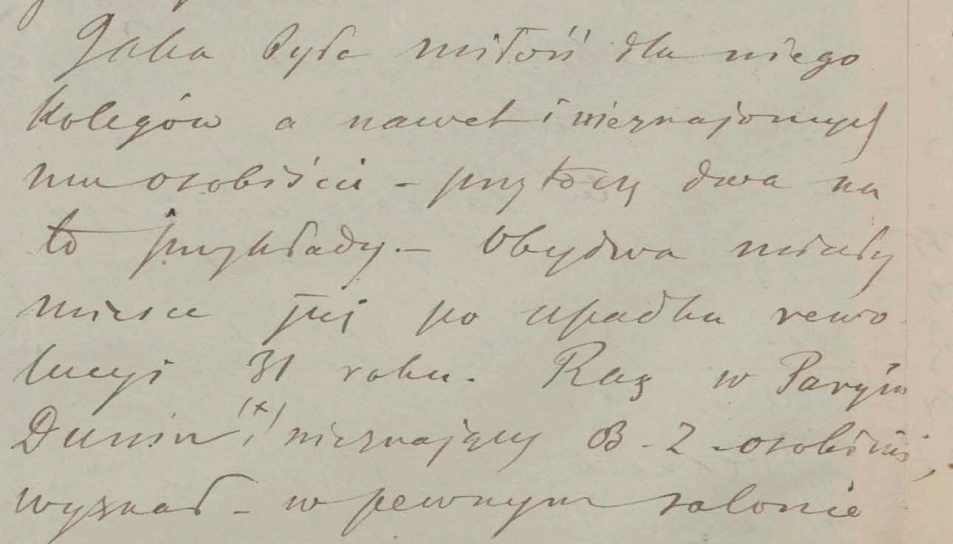 Jaka była miłość dla niego
kolegów a nawet i nieznajomych
mu osobiście – przytoczę dwa na
to przykłady. – Obydwa miały
miejsce już po upadku rewo-
lucyi 31 roku. Raz w Paryżu
Dunin (x) nieznający B. Z. osobiście,
wyznał – w pewnym salonie